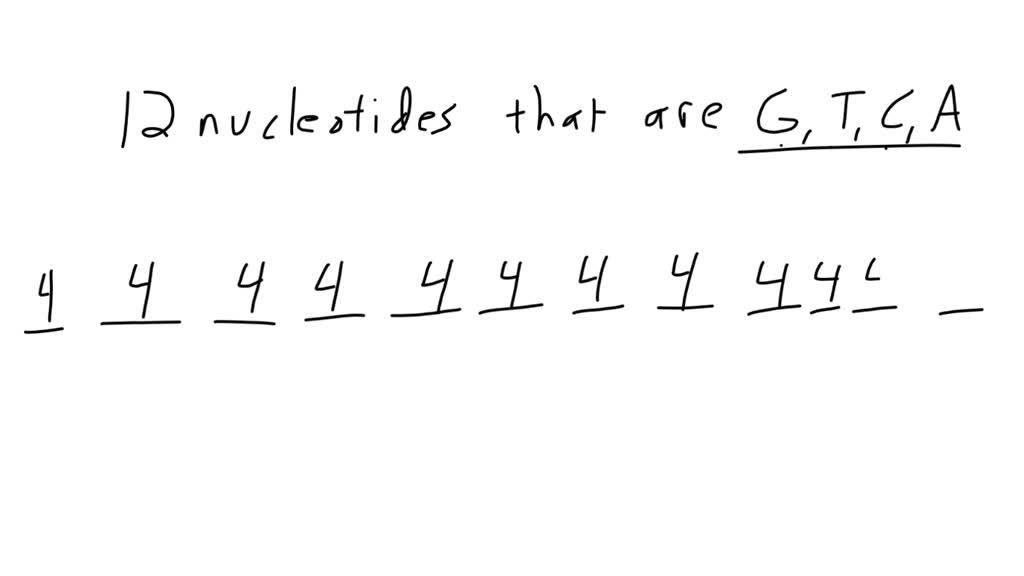 12 nucleotides that are G, T, C, A
4 4 4 4 4 4 4 4 4 4